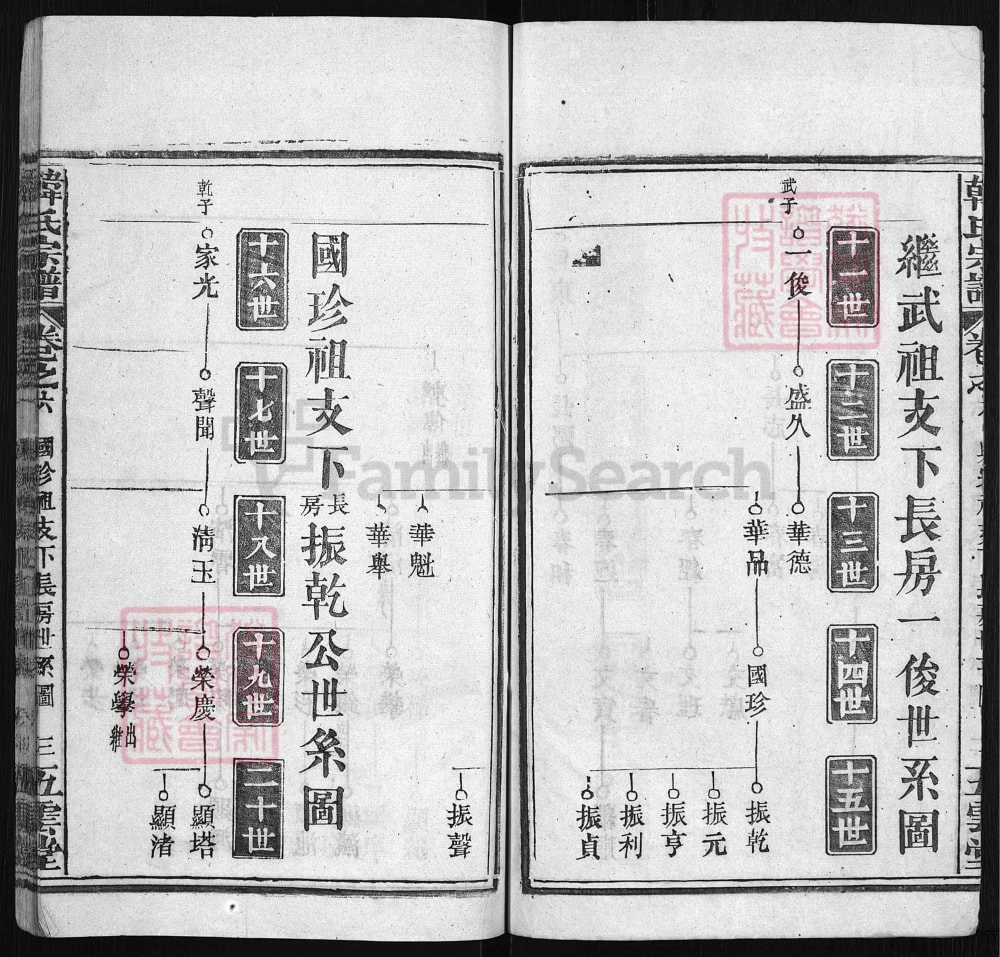 繼武祖支下長房一俊世系圖
十一世
十二世
十三世
十四世
十五世
武子
一俊
盛久
華德
華品
國珍
振乾
振元
振亨
振利
振貞
華魁
華舉
振聲
國珍祖支下長房振乾公世系圖
十六世
十七世
十八世
十九世
二十世
乾子
家光
聲聞
清玉
榮慶
顯塔
顯渚
榮學出繼
韓氏宗譜
卷之六
國珍祖支下長房世系圖
三
五雲堂
韓氏宗譜
五雲堂
FamilySearch